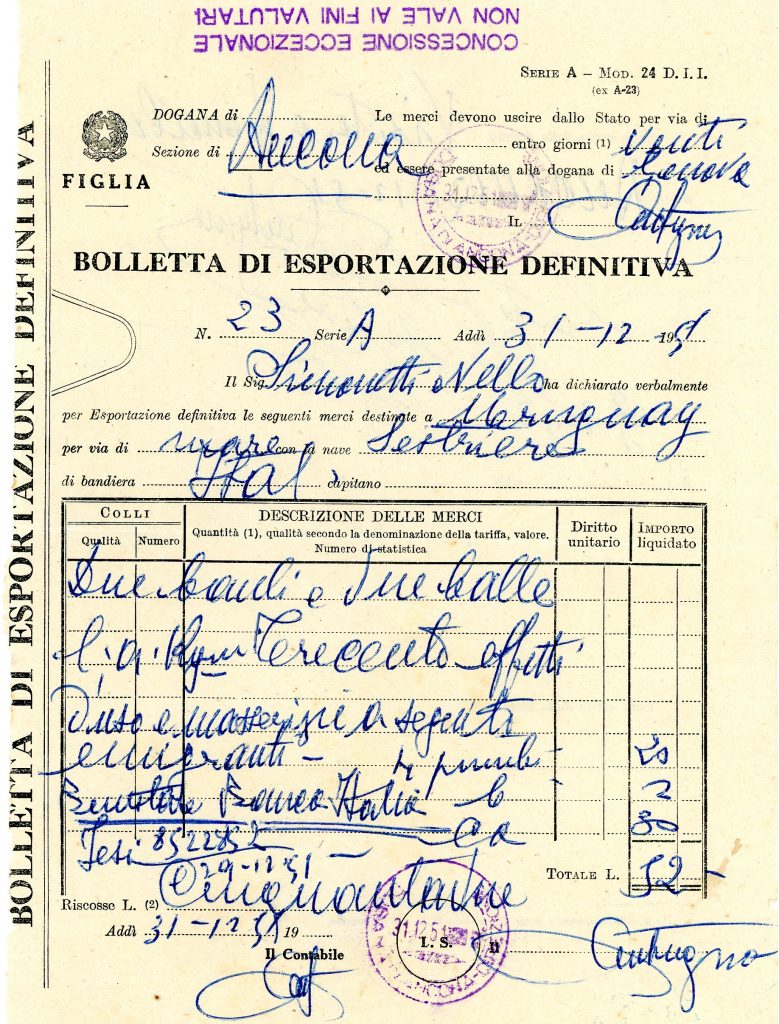 CONCESSIONE ECCEZIONALE
NON VALE AI FINI VALUTARI
SERIE A – MOD. 24 D. I. I.
(ex A-23)
DOGANA di Ancona
Sezione di
FIGLIA
Le merci devono uscire dallo Stato per via di
entro giorni (1) venti
ed essere presentate alla dogana di Genova
IL
BOLLETTA DI ESPORTAZIONE DEFINITIVA
BOLLETTA DI ESPORTAZIONE DEFINITIVA
N. 23 Serie A Addì 31-12 1951
Il Sig. Simonetti Nello ha dichiarato verbalmente
per Esportazione definitiva le seguenti merci destinate a Uruguay
per via di mare con la nave
di bandiera Ital capitano
COLLI
Qualità Numero
DESCRIZIONE DELLE MERCI
Quantità (1), qualità secondo la denominazione della tariffa, valore.
Numero di statistica
Diritto unitario
IMPORTO liquidato
Due bauli e due balle
Kgm Trecento effetti
d'uso e masserizie a seguito
emigranti – 20
Banca Italia 2
Jesi 8522852 30
29-12-51
TOTALE L. 52 –
Riscosse L. (2) Cinquantadue
Addì 31-12-51 19
Il Contabile
L. S.
Il
31.12.51
31.12.51